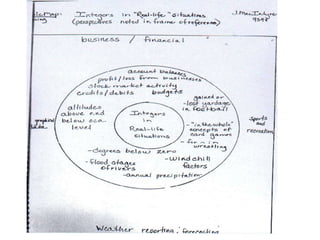 Integers in "Real-life" Situations
(perspectives noted in frame of reference)
business / financial
account balances
profit/loss from businesses
stock market activity
credits/debits budgets
gained or
lost yardage
in football
altitudes
above and
below sea
level
Integers
in
Real-life
Situations
"in the hole"
concepts of
card games
+ or - in
wrestling
Sports
and
recreation
-degrees below zero
-flood stages
of rivers
-Windchill
factors
-annual precipitation
Weather reporting/forecasting